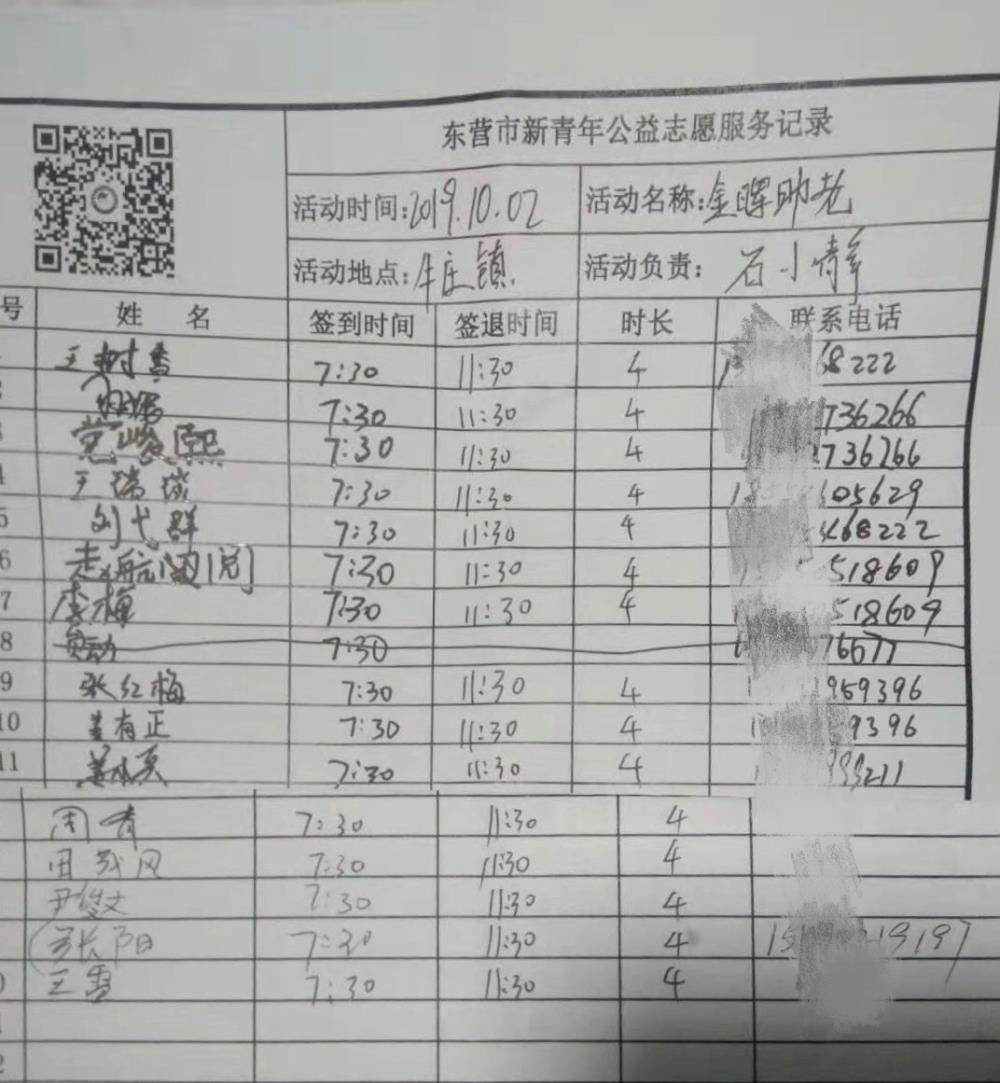 东营市新青年公益志愿服务记录
活动时间:2019.10.02 活动名称:金晖助老
活动地点:牛庄镇 活动负责:石小静
号 姓 名 签到时间 签退时间 时长 联系电话
王树香 7:30 11:30 4 68222
7:30 11:30 4 736266
党峻熙 7:30 11:30 4 736266
4 王瑞 7:30 11:30 4 605629
5 刘代群 7:30 11:30 4 468222
6 7:30 11:30 4 518609
7 李梅 7:30 11:30 4 518609
8 7:30 76677
9 张红梅 7:30 11:30 4 959396
10 姜有正 7:30 11:30 4 9396
11 7:30 11:30 4 99211
周青 7:30 11:30 4
田茂风 7:30 11:30 4
尹俊文 7:30 11:30 4
张阳 7:30 11:30 4 19197
王雪 7:30 11:30 4